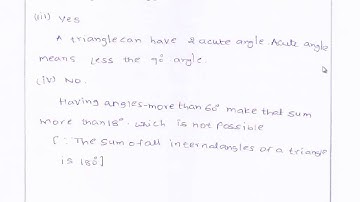 (iii) Yes
A triangle can have 2 acute angle. Acute angle
means less the 90° angle.
(iv) No.
Having angles-more than 60° make that sum
more than 18°. which is not possible
[∵ The sum of all internal angles of a triangle
is 180°]